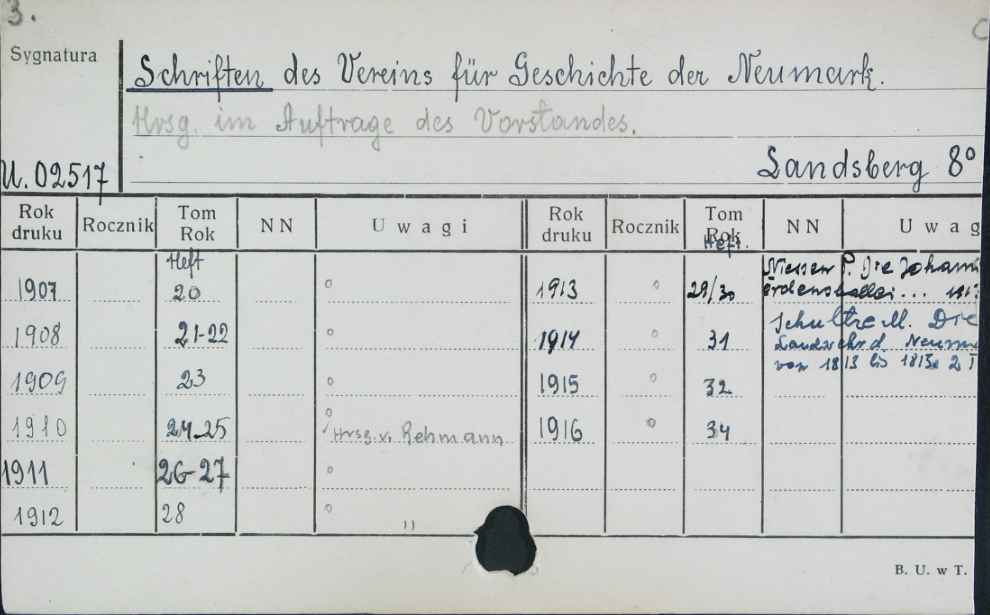 3.
C
Sygnatura
Schriften des Vereins für Geschichte der Neumark.
Hrsg. im Auftrage des Vorstandes.
U. 02517
Landsberg 8°
Rok druku Rocznik Tom Rok NN Uwagi Rok druku Rocznik Tom Rok NN Uwag
Heft Heft.
1907 20
1908 21-22
1909 23
1910 24-25 Hrsg. v. Rehmann
1911 26-27
1912 28 "
1913 29/30 P. Die Johann
ordensballei... 
1914 31 Schultze M. Die
Landwehr d. Neumar
von 1813 bis 1815. 2 T
1915 32
1916 34
B. U. w T.